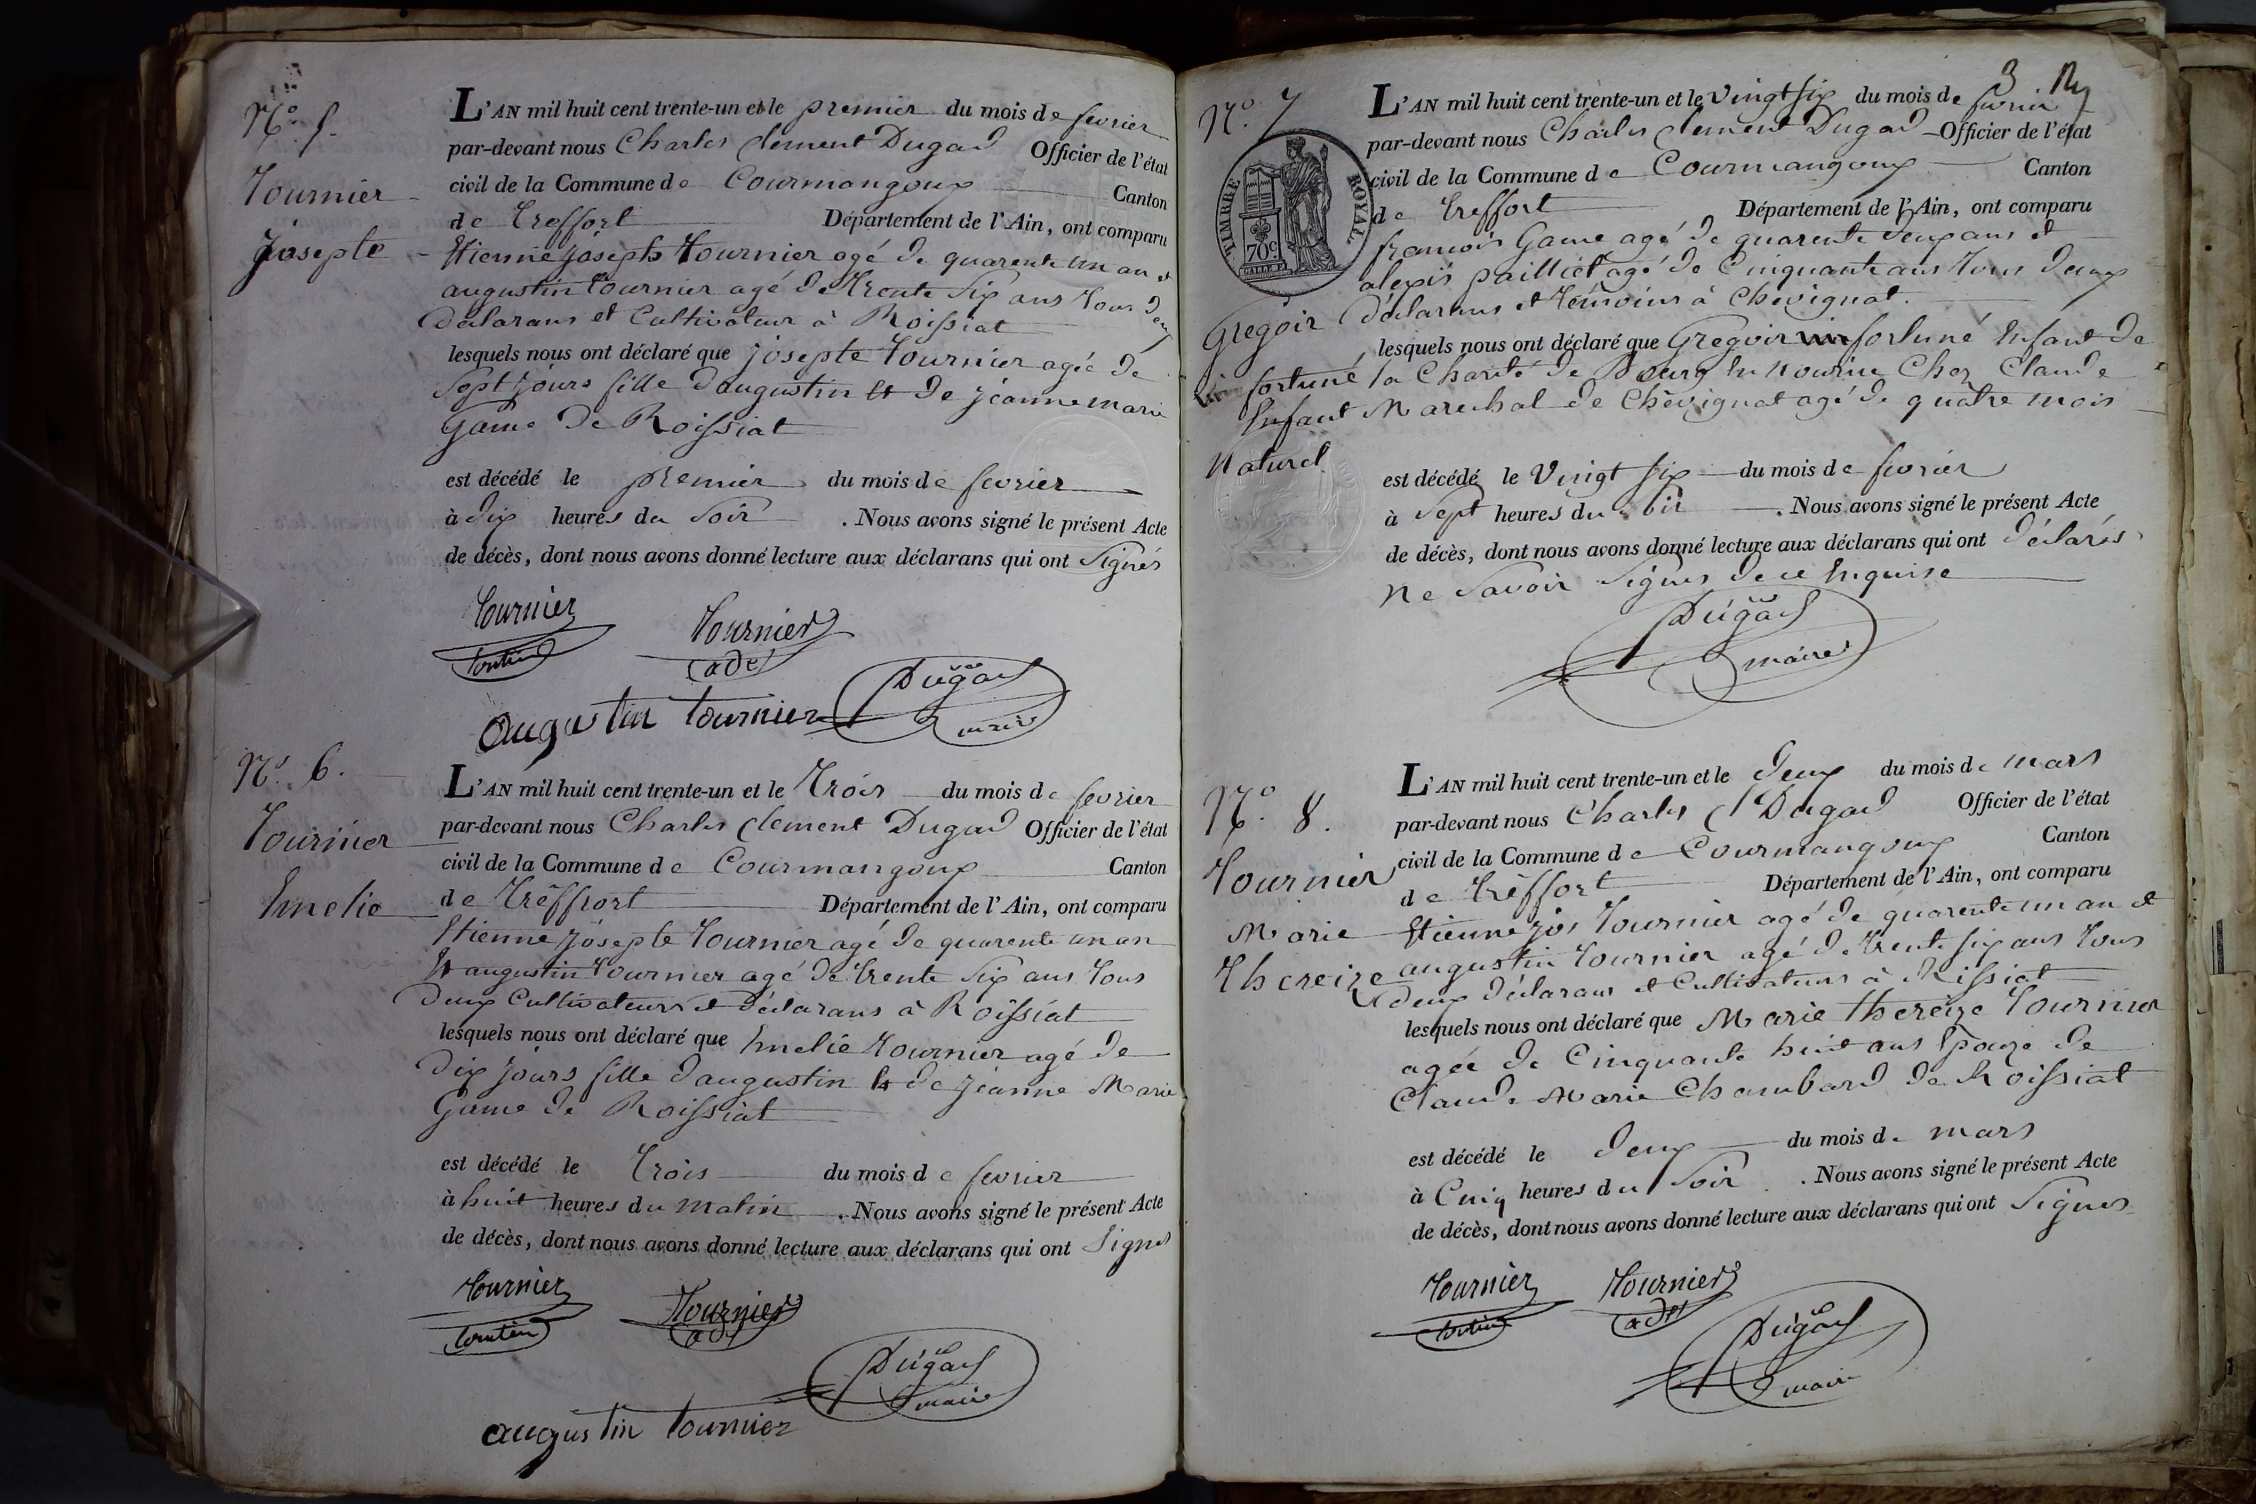 N.º 5.
Tournier
josepte
L'AN mil huit cent trente-un et le premier du mois de fevrier
par-devant nous Charles Clement Dugad Officier de l'état
civil de la Commune de Courmangoux Canton
de Treffort Département de l'Ain, ont comparu
Etienne joseph Tournier agé de quarente un an et
augustin tournier agé de trente Six ans tous deux
déclarans et Cultivateur à Roissiat
lesquels nous ont déclaré que josepte Tournier agée de
Sept jours fille d'augustin Et de jeanne marie
Game de Roissiat
est décédé le premier du mois de fevrier
à Six heures du Soir . Nous avons signé le présent Acte
de décès, dont nous avons donné lecture aux déclarans qui ont Signés
Tournier Tournier
adt
Dugad
maire
augustin tournier
N.º 6.
Tournier
Emelie
L'AN mil huit cent trente-un et le Trois du mois de fevrier
par-devant nous Charles Clement Dugad Officier de l'état
civil de la Commune de Courmangoux Canton
de Trèffort Département de l'Ain, ont comparu
Etienne josepte Tournier agé de quarente un an
Et augustin tournier agé de trente Six ans tous
deux Cultivateurs et déclarans à Roissiat
lesquels nous ont déclaré que Emelie Tournier agé de
Dix jours fille d'augustin Et de jeanne Marie
Game de Roissiat
est décédé le Trois du mois de fevrier
à huit heures du Matin . Nous avons signé le présent Acte
de décès, dont nous avons donné lecture aux déclarans qui ont Signés
Tournier Tournier
adt
Dugad
maire
augustin tournier
3
N.º 7
TIMBRE ROYAL
70c
Gregoir
fortuné
Enfant
Naturel
L'AN mil huit cent trente-un et le Vingt Six du mois de fevrier
par-devant nous Charles Clement Dugad Officier de l'état
civil de la Commune de Courmangoux Canton
de Treffort Département de l'Ain, ont comparu
francois Game agé de quarente deux ans et
alexis pailliet agé de Cinquante ans tous deux
déclarans et témoins à Chevignat.
lesquels nous ont déclaré que Gregoir fortuné Enfant de
la Charité de Bourg En Nourice Chez Claude
Marechal de Chevignat agé de quatre mois
est décédé le Vingt Six du mois de fevrier
à Sept heures du Soir . Nous avons signé le présent Acte
de décès, dont nous avons donné lecture aux déclarans qui ont déclarés
Ne Savoir Signer de ce Enquise
Dugad
maire
N.º 8.
Tournier
Marie
Thereize
L'AN mil huit cent trente-un et le Deux du mois de mars
par-devant nous Charles Ct Dugad Officier de l'état
civil de la Commune de Courmangoux Canton
de Trèffort Département de l'Ain, ont comparu
Etienne jos Tournier agé de quarente un an et
augustin tournier agé de trente six ans tous
deux déclarans et Cultivateurs à Rissiat
lesquels nous ont déclaré que Marie thereize Tournier
agée de Cinquante huit ans Epouze de
Claude Marie Chambard de Roissiat
est décédé le Deux du mois de mars
à Cinq heures du Soir . Nous avons signé le présent Acte
de décès, dont nous avons donné lecture aux déclarans qui ont Signés
Tournier Tournier
adt
Dugad
maire